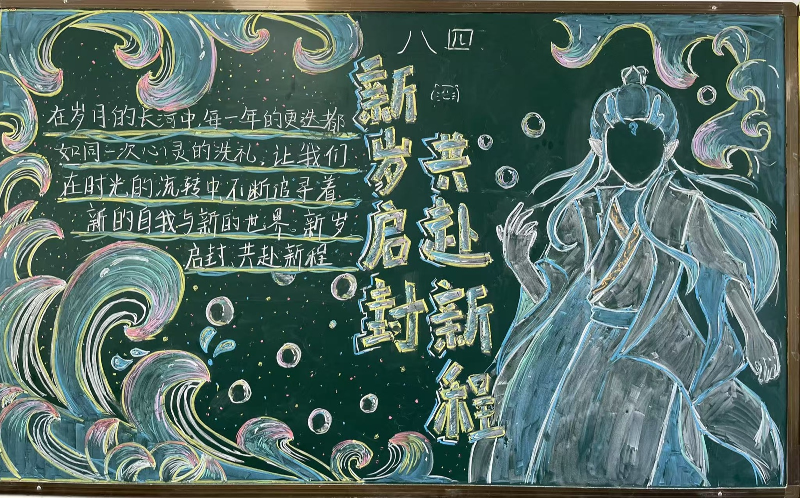 八四
新岁启封
共赴新程
在岁月的长河中,每一年的更迭都
如同一次心灵的洗礼,让我们
在时光的流转中,不断追寻着
新的自我与新的世界。新岁
启封,共赴新程